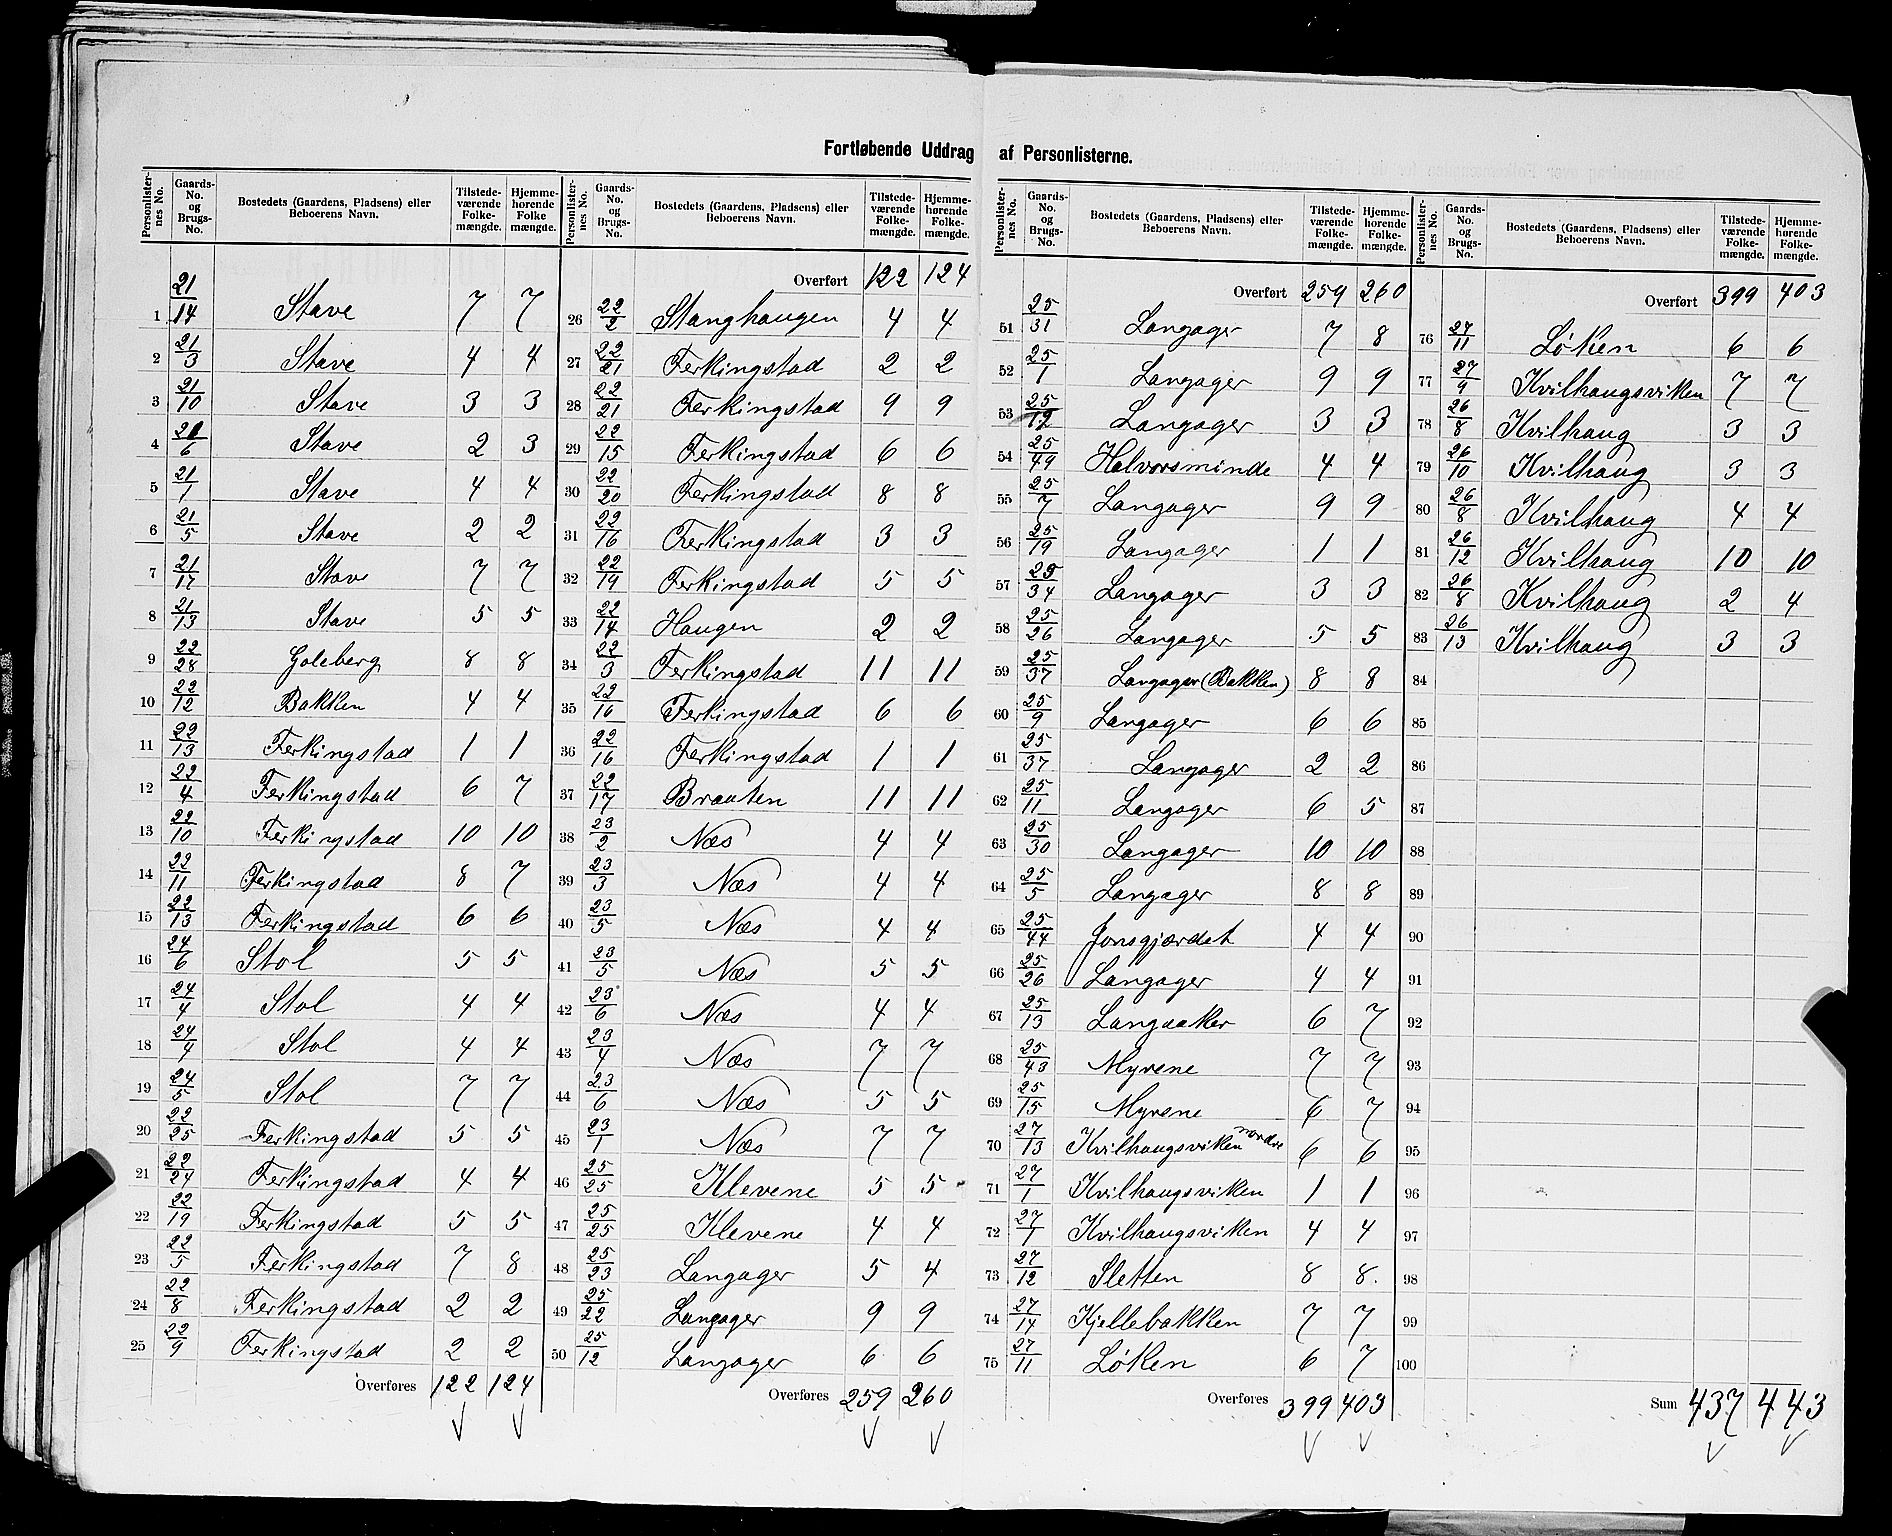 Fortløbende Uddrag af Personlisterne.
Personlister-nes No. | Gaards-No. og Brugs-No. | Bostedets (Gaardens, Pladsens) eller Beboerens Navn. | Tilstede-værende Folke-mængde. | Hjemme-hørende Folke mængde.
1 21/14 Stave 7 7
2 21/3 Stave 4 4
3 21/10 Stave 3 3
4 21/6 Stave 2 3
5 21/1 Stave 4 4
6 21/5 Stave 2 2
7 21/17 Stave 7 7
8 21/13 Stave 5 5
9 22/28 Goleberg 8 8
10 22/12 Bakken 4 4
11 22/13 Ferkingstad 1 1
12 22/4 Ferkingstad 6 7
13 22/10 Ferkingstad 10 10
14 22/11 Ferkingstad 8 7
15 22/13 Ferkingstad 6 6
16 24/6 Stol 5 5
17 24/4 Stol 4 4
18 24/1 Stol 4 4
19 24/5 Stol 7 7
20 22/25 Ferkingstad 5 5
21 22/24 Ferkingstad 4 4
22 22/19 Ferkingstad 5 5
23 22/5 Ferkingstad 7 8
24 22/8 Ferkingstad 2 2
25 22/9 Ferkingstad 2 2
Overføres 122 124
Personlister-nes No. | Gaards-No. og Brugs-No. | Bostedets (Gaardens, Pladsens) eller Beboerens Navn. | Tilstede-værende Folke-mængde. | Hjemme-hørende Folke-mængde.
Overført 122 124
26 22/2 Stanghaugen 4 4
27 22/21 Ferkingstad 2 2
28 22/21 Ferkingstad 9 9
29 22/15 Ferkingstad 6 6
30 22/20 Ferkingstad 8 8
31 22/16 Ferkingstad 3 3
32 22/19 Ferkingstad 5 5
33 22/14 Haugen 2 2
34 22/3 Ferkingstad 11 11
35 22/16 Ferkingstad 6 6
36 22/16 Ferkingstad 1 1
37 22/17 Brauten 11 11
38 23/2 Næs 4 4
39 23/3 Næs 4 4
40 23/5 Næs 4 4
41 23/5 Næs 5 5
42 23/6 Næs 4 4
43 23/4 Næs 7 7
44 23/6 Næs 5 5
45 23/1 Næs 7 7
46 25/25 Klevene 5 5
47 25/25 Klevene 4 4
48 25/23 Langager 5 4
49 25/22 Langager 9 9
50 25/12 Langager 6 6
Overføres 259 260
Personlister-nes No. | Gaards-No. og Brugs-No. | Bostedets (Gaardens, Pladsens) eller Beboerens Navn. | Tilstede-værende Folke-mængde. | Hjemme-hørende Folke-mængde.
Overført 259 260
51 25/31 Langager 7 8
52 25/1 Langager 9 9
53 25/12 Langager 3 3
54 25/49 Halvorsminde 4 4
55 25/7 Langager 9 9
56 25/19 Langager 1 1
57 25/34 Langager 3 3
58 25/26 Langager 5 5
59 25/37 Langager (Bakken) 8 8
60 25/9 Langager 6 6
61 25/37 Langager 2 2
62 25/11 Langager 6 5
63 25/30 Langager 10 10
64 25/5 Langager 8 8
65 25/44 Jonsgjærdet 4 4
66 25/26 Langager 4 4
67 25/13 Langaaker 6 7
68 25/43 Myrene 7 7
69 25/15 Myrene 6 7
70 27/13 Kvilhaugsviken nordre 6 6
71 27/1 Kvilhaugsviken 1 1
72 27/1 Kvilhaugsviken 4 4
73 27/12 Sletten 8 8
74 27/14 Kjellebakken 7 7
75 27/11 Løken 6 7
Overføres 399 403
Personlister-nes No. | Gaards-No. og Brugs-No. | Bostedets (Gaardens, Pladsens) eller Beboerens Navn. | Tilstede-værende Folke-mængde. | Hjemme-hørende Folke-mængde.
Overført 399 403
76 27/11 Løken 6 6
77 27/9 Kvilhaugsviken 7 7
78 26/8 Kvilhaug 3 3
79 26/10 Kvilhaug 3 3
80 26/8 Kvilhaug 4 4
81 26/12 Kvilhaug 10 10
82 26/8 Kvilhaug 2 4
83 26/13 Kvilhaug 3 3
84
85
86
87
88
89
90
91
92
93
94
95
96
97
98
99
100
Sum 437 443